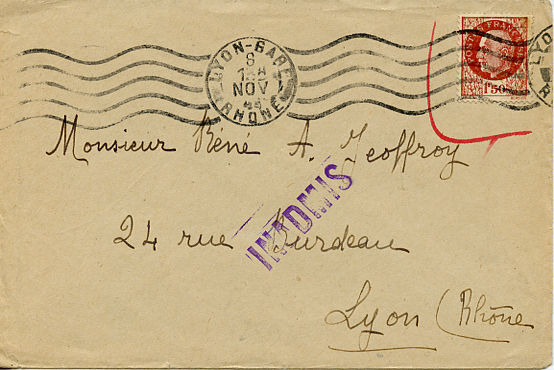 LYON-GARE
8
NOV
44
RHONE
POSTES FRANCE
1F50
LYO
R
Monsieur Réné A. Jeoffroy
INADMIS
24 rue Burdeau
Lyon (Rhône